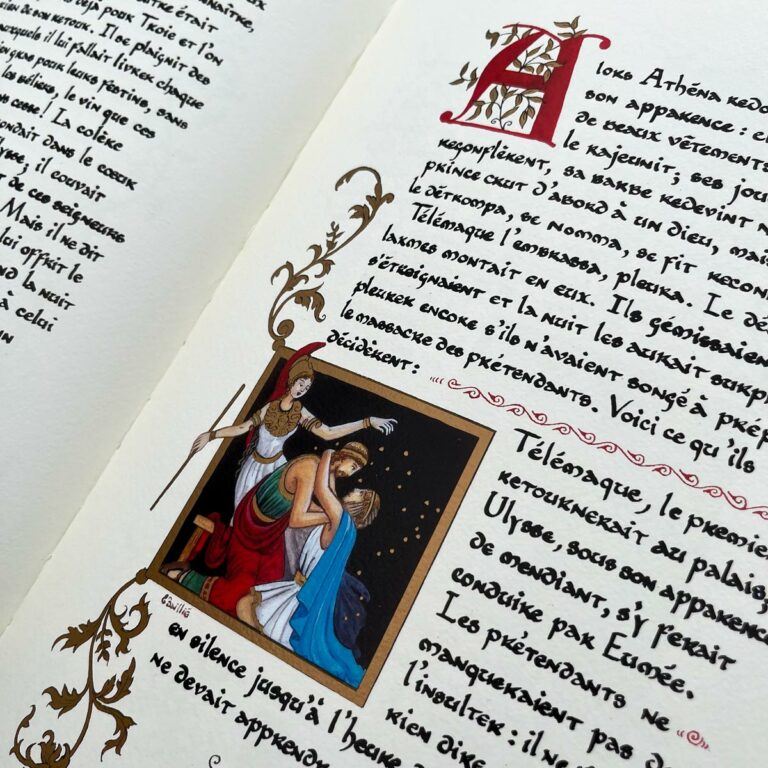 maître était
déjà pour Troie et l'on
rien de son retour. Il se plaignit des
auxquels il lui fallait livrer chaque
gras pour leurs festins, sans
les béliers, le vin que ces
cesse! La colère
dans le cœur
il couvait
de ces seigneurs
Mais il ne dit
lui offrit le
la nuit
à celui
un
Alors Athéna redo
son apparence : e
de beaux vêtements
le rajeunit; ses jou
regonflèrent, sa barbe redevint n
prince crut d'abord à un dieu, mai
le détrompa, se nomma, se fit reconn
Télémaque l'embrassa, pleura. Le dé
larmes montait en eux. Ils gémissaien
s'étreignaient et la nuit les aurait surpr
pleurer encore s'ils n'avaient songé à prép
le massacre des prétendants. Voici ce qu'ils
décidèrent :
Télémaque, le premie
retournerait au palais,
Ulysse, sous son apparence
de mendiant, s'y ferait
conduire par Eumée.
Les prétendants ne
manqueraient pas d
l'insulter : il ne
rien dire
en silence jusqu'à l'heure
ne devait apprend